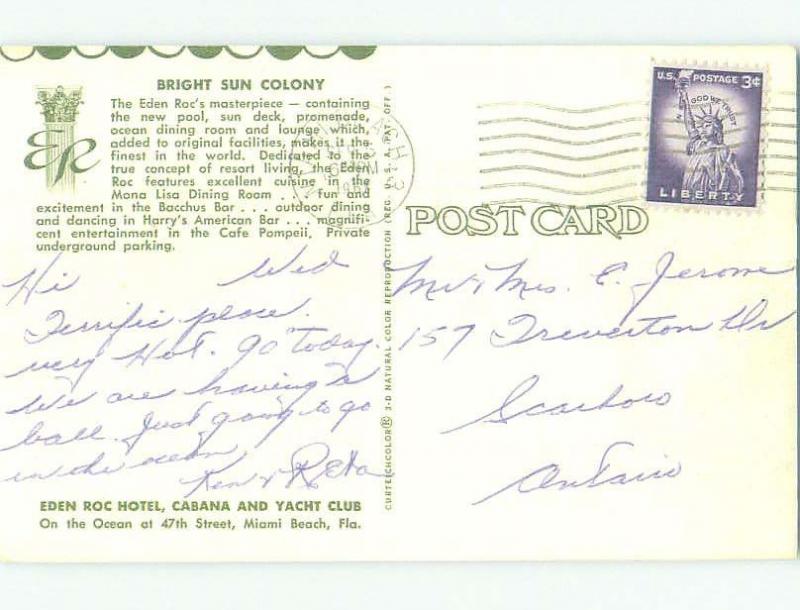 BRIGHT SUN COLONY
The Eden Roc's masterpiece — containing
the new pool, sun deck, promenade,
ocean dining room and lounge which,
added to original facilities, makes it the
finest in the world. Dedicated to the
true concept of resort living, the Eden
Roc features excellent cuisine in the
Mona Lisa Dining Room . . . fun and
excitement in the Bacchus Bar . . . outdoor dining
and dancing in Harry's American Bar . . . magnifi-
cent entertainment in the Cafe Pompeii, Private
underground parking.
ER
Hi Wed
Terrific place.
very Hot. 90° today.
We are having a
ball. Just going to go
in the ocean
Ken & Reta
EDEN ROC HOTEL, CABANA AND YACHT CLUB
On the Ocean at 47th Street, Miami Beach, Fla.
CURTEICHCOLOR® 3-D NATURAL COLOR REPRODUCTION (REG. U.S.A. PAT. OFF.)
U.S. POSTAGE 3¢
IN GOD WE TRUST
LIBERTY
POST CARD
Mr & Mrs. E. Jerome
157 Treverton Dr
Scarboro
Ontario